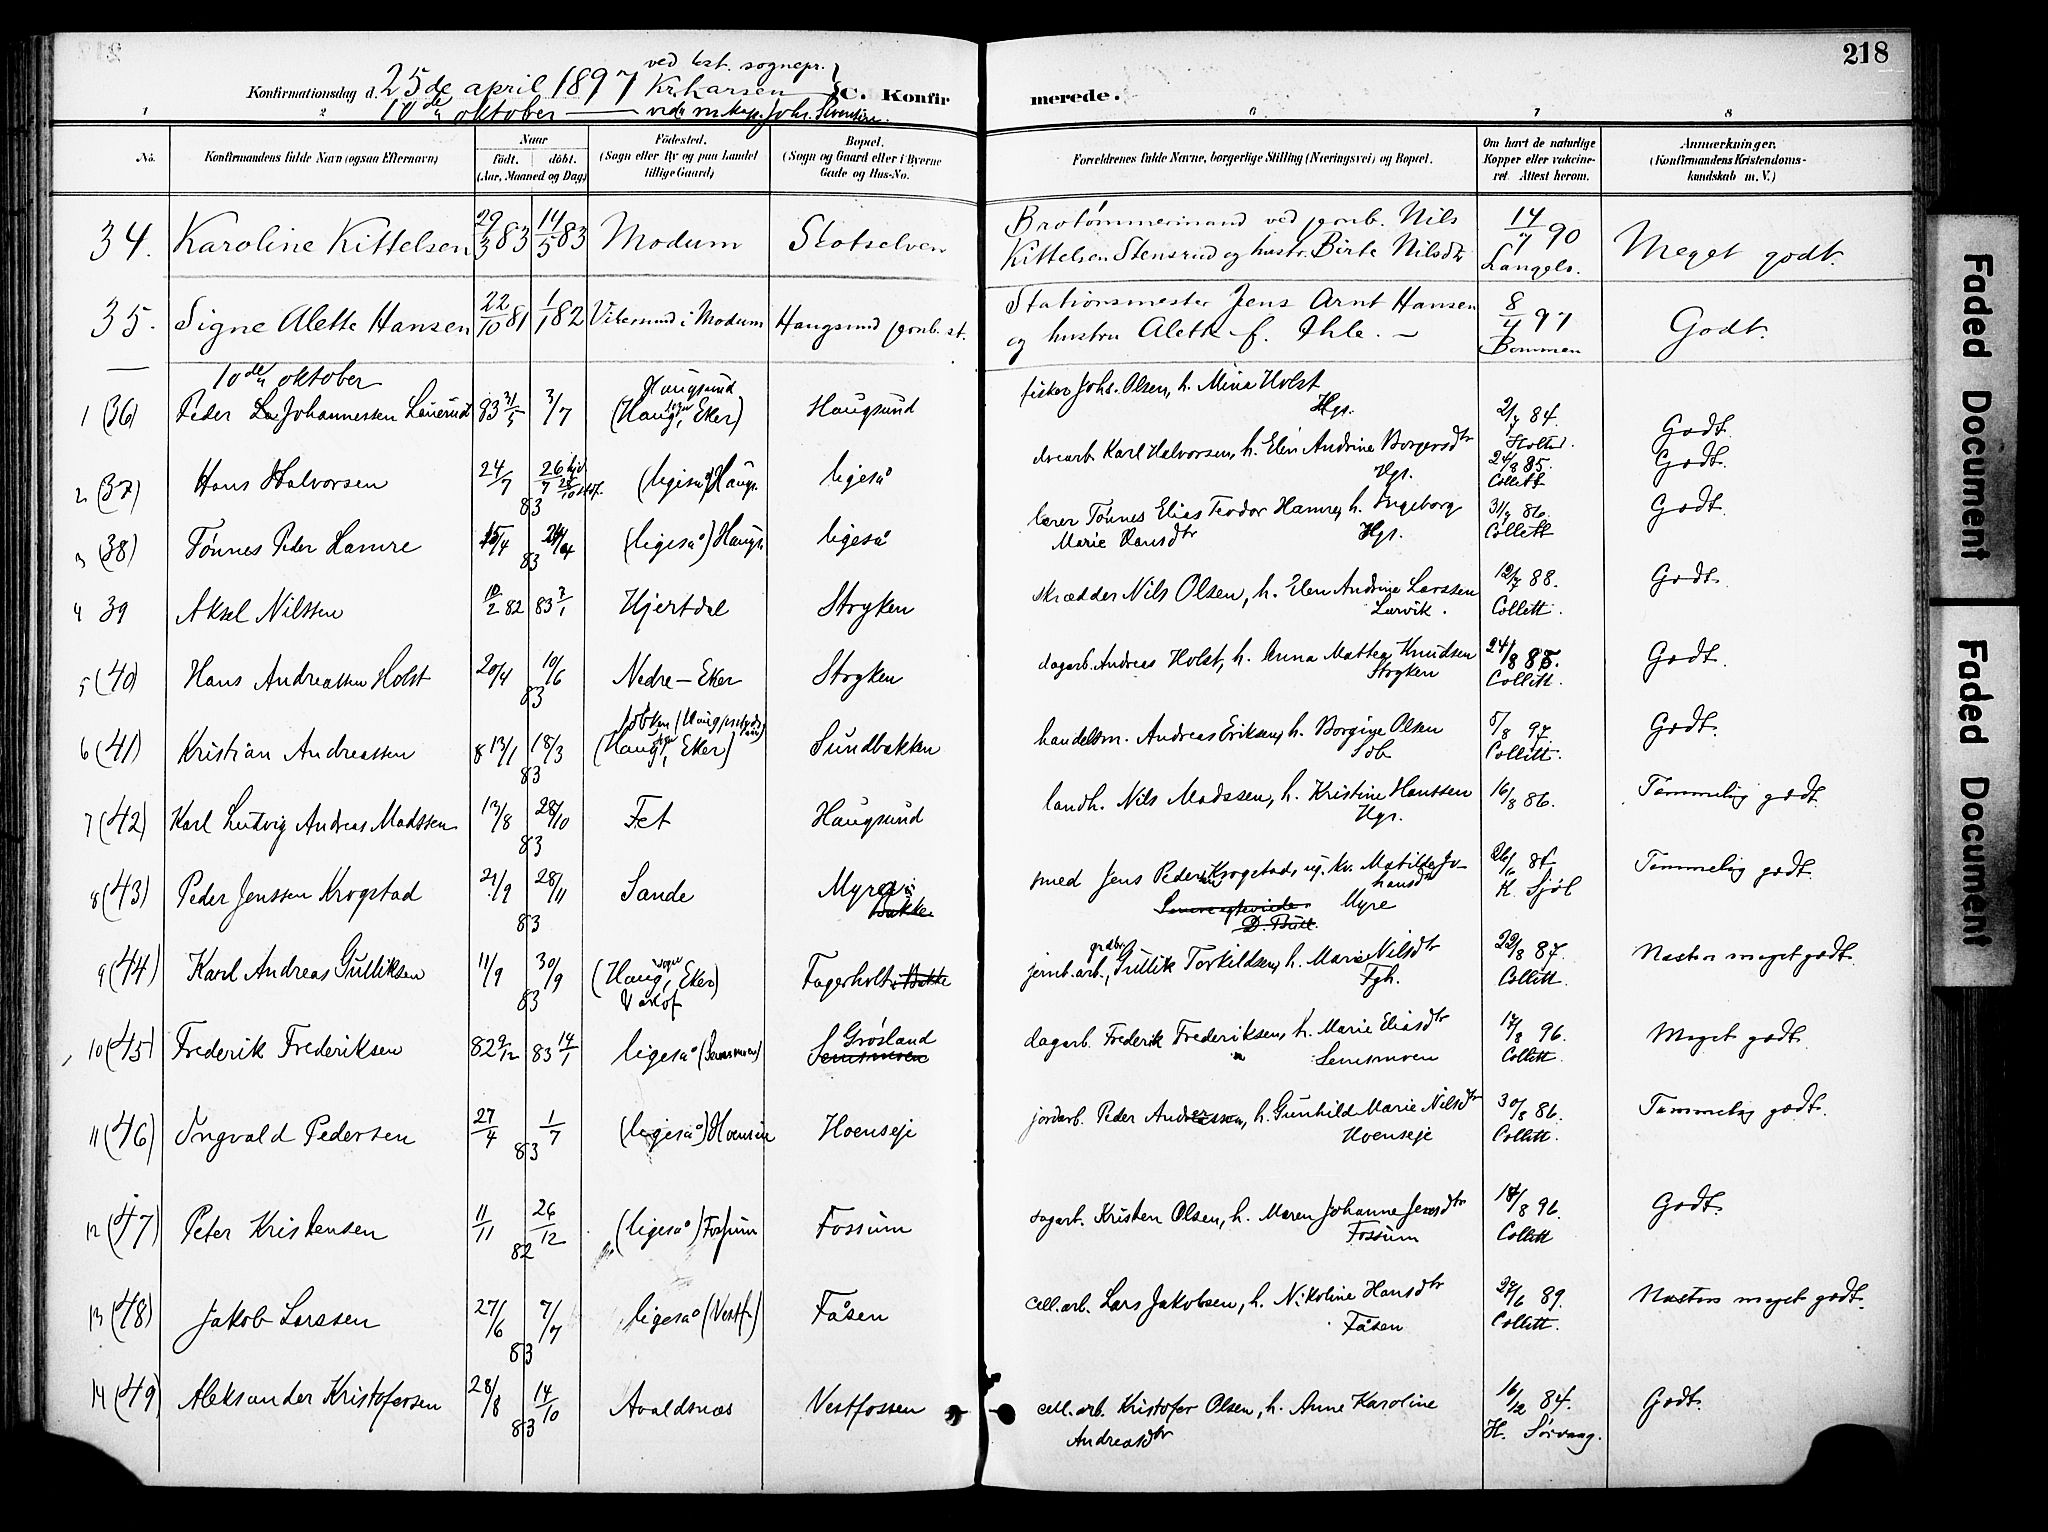 218
ved kst. sognepr.
Konfirmationsdag d. 25de april 1897 Kr. Larsen C. Konfirmerede.
10de oktober — Joh.
1 2 6 7 8
No. Konfirmandens fulde Navn (ogsaa Efternavn) Naar födt. döbt. (Aar, Maaned og Dag) Födested. (Sogn eller By og paa Landet tillige Gaard) Bopæl. (Sogn og Gaard eller i Byerne Gade og Hus-No. Forældrenes fulde Navne, borgerlige Stilling (Næringsvei) og Bopæl. Om havt de naturlige Kopper eller vaccineret. Attest herom. Anmærkninger. (Konfirmandens Kristendomskundskab m. V.)
34. Karoline Kittelsen 29/3 83 14/5 83 Modum Skotselven Brotømmermand ved jernb. Nils Kittelsen Stensrud og hustr. Birte Nilsdtr 14/7 90 Langels. Meget godt.
35. Signe Alette Hansen 22/10 81 1/1 82 Vikersund i Modum Haugsund jernb. st. Stationsmester Jens Arnt Hansen og hustru Alette f. Ihle. — 8/4 97 Bommen Godt.
— 10de oktober
1 (36) Peder Johannessen Leverud 83 31/5 3/7 Haugsund (Haug sogn, Eker) Haugsund fisker Johs. Olsen, h. Mina Holst Hgs. 2/7 84. Holted. Godt.
2 (37) Hans Halvorsen 24/7 26/7 hjd 83 (ligeså) Haugs. ligeså Karl Halvorsen, h. Elen Andrine Borgersdtr Hgs. 24/8 85. Collett Godt.
3 (38) Tønnes Peder Hamre 15/4 83 (ligeså) Haugs. ligeså lærer Tønnes Elias Teodor Hamre, h. Ingeborg Marie Hansdtr Hgs. 31/7 86. Collett Godt.
4 39 Aksel Nilssen 10/2 82 83 7/1 Hjertdal Stryken skrædder Nils Olsen, h. Elen Andrine Larssen Larvik. 12/7 88. Collett. Godt.
5 (40) Hans Andreassen Holst 20/4 10/6 83 Nedre-Eker Stryken dagarb. Andreas Holst, h. Anna Mattea Knudsen Stryken 24/8 85. Collett. Godt.
6 (41) Kristian Andreassen 13/1 18/3 83 (Haug sogn, Eker) Sundbakken handelsm. Andreas Eriksen, h. Borgine Olsen Sob 5/8 97. Collett. Godt.
7 (42) Karl Ludvig Andreas Madssen 13/8 28/10 83 Fet Haugsund landh. Nils Madssen, h. Kristine Hanssen Hgs. 16/8 86. Temmelig godt.
8 (43) Peder Jenssen Krogstad 21/9 28/11 83 Sande Myre Bakke smed Jens Pedersen Krogstad, ug. kv. Matilde Johansdtr Myre 26/6 87. K. Sjøl Temmelig godt.
9 (44) Karl Andreas Gulliksen 11/9 30/9 83 (Haug sogn, Eker) Varlof Fagerholt Bakke jernb.arb. Gullik Torkildsen, h. Marie Nilsdtr Fgh. 22/8 87. Collett. Næsten meget godt.
10 (45) Frederik Frederiksen 82 9/12 83 14/1 ligeså (Semsmoen) S Grøsland Semsmoen dagarb. Frederik Frederiksen, h. Marie Eliasdtr Semsmoen 17/8 96. Collett. Meget godt.
11 (46) Ingvald Pedersen 27/4 1/7 83 (ligeså) Hoenseie Hoenseje jordarb. Peder Anderssen, h. Gunhild Marie Nilsdtr Hoenseje 30/8 86. Collett. Temmelig godt.
12 (47) Peter Kristensen 11/11 26/12 82 (ligeså) Fossum Fossum dagarb. Kristen Olsen, h. Maren Johanne Jensdtr Fossum 18/8 96. Collett Godt.
13 (48) Jakob Larssen 27/6 7/7 83 ligeså (Vestf.) Fåsen cell.arb. Lars Jakobsen, h. Nikoline Hansdtr Fåsen 27/6 89. Collett. Næsten meget godt.
14 (49) Aleksander Kristofersen 28/8 14/10 83 Avaldsnæs Vestfossen cell.arb. Kristofer Olsen, h. Anne Karoline Andreasdtr 16/12 84. H. Sørvaag. Godt.
Faded Document
Faded Document